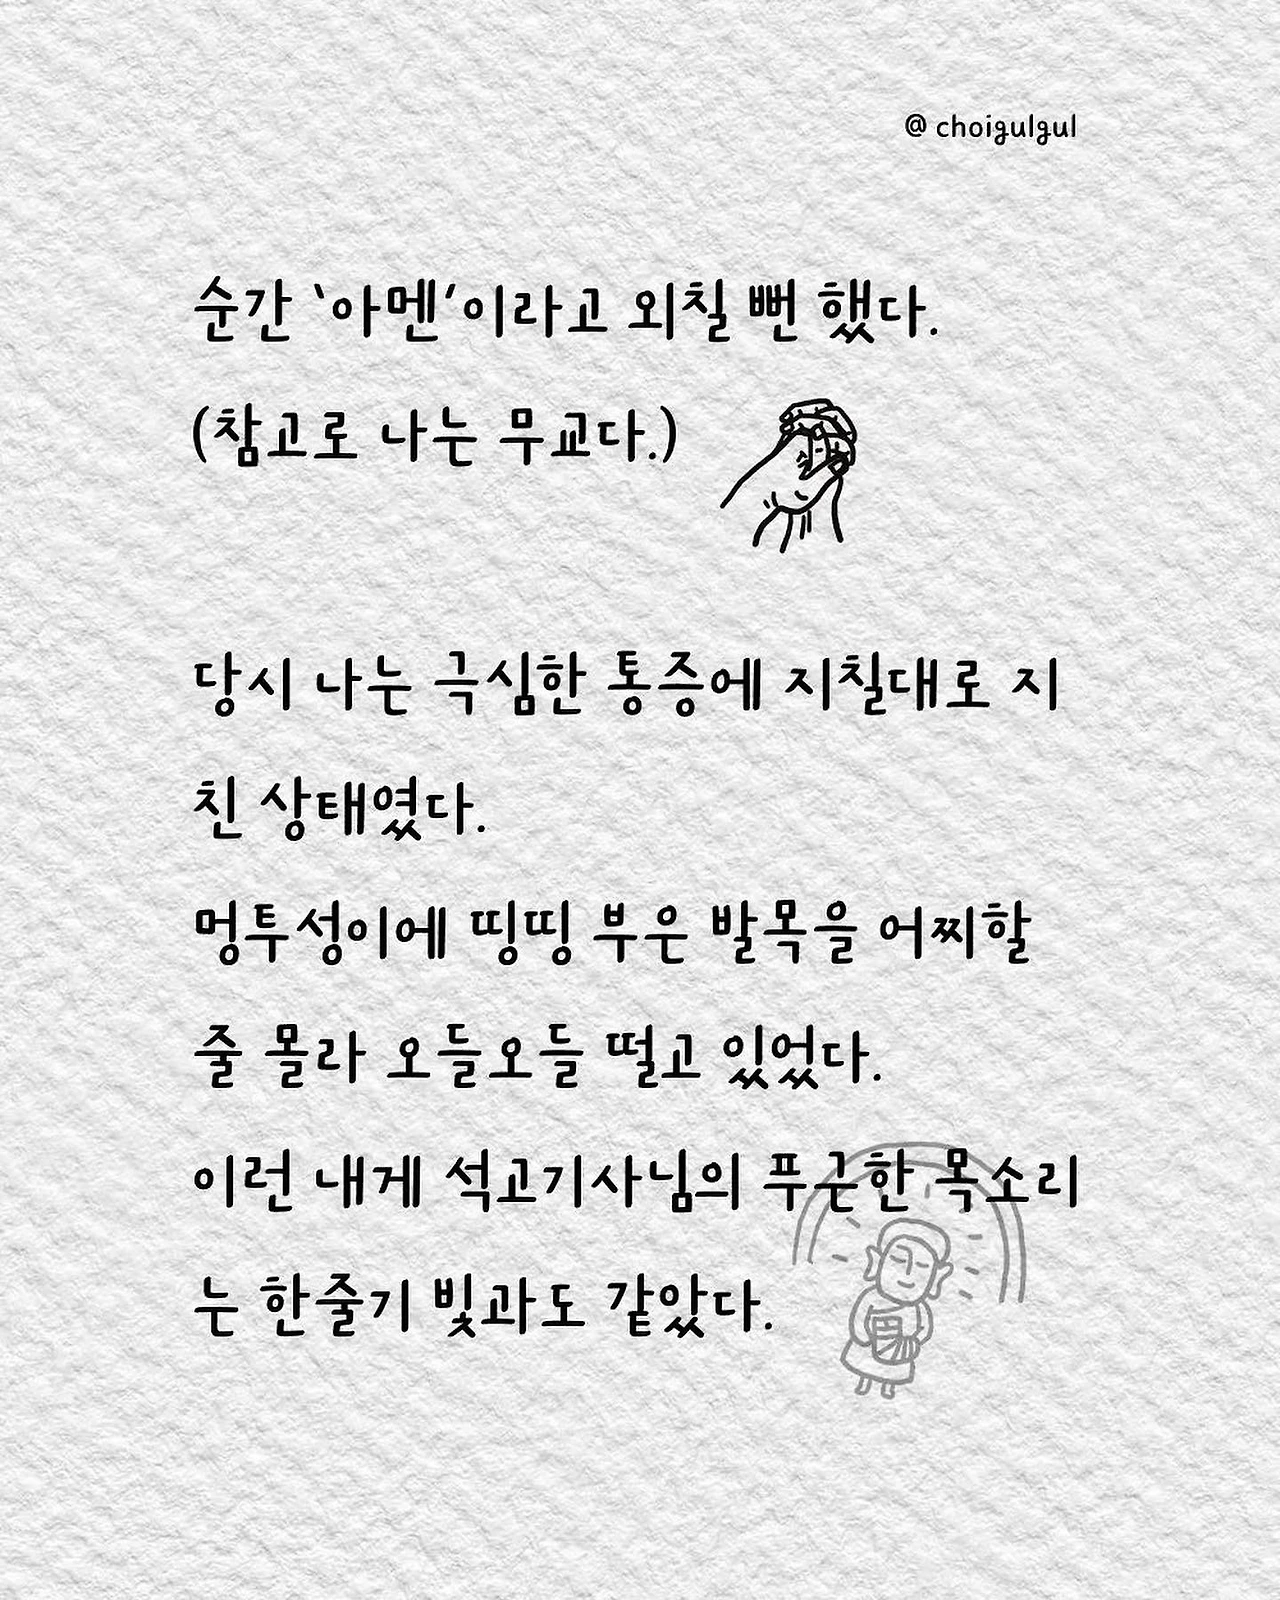 @ choigulgul
순간 ‘아멘’이라고 외칠 뻔 했다.
(참고로 나는 무교다.)
당시 나는 극심한 통증에 지칠대로 지
친 상태였다.
멍투성이에 띵띵 부은 발목을 어찌할
줄 몰라 오들오들 떨고 있었다.
이런 내게 석고기사님의 푸근한 목소리
는 한줄기 빛과도 같았다.